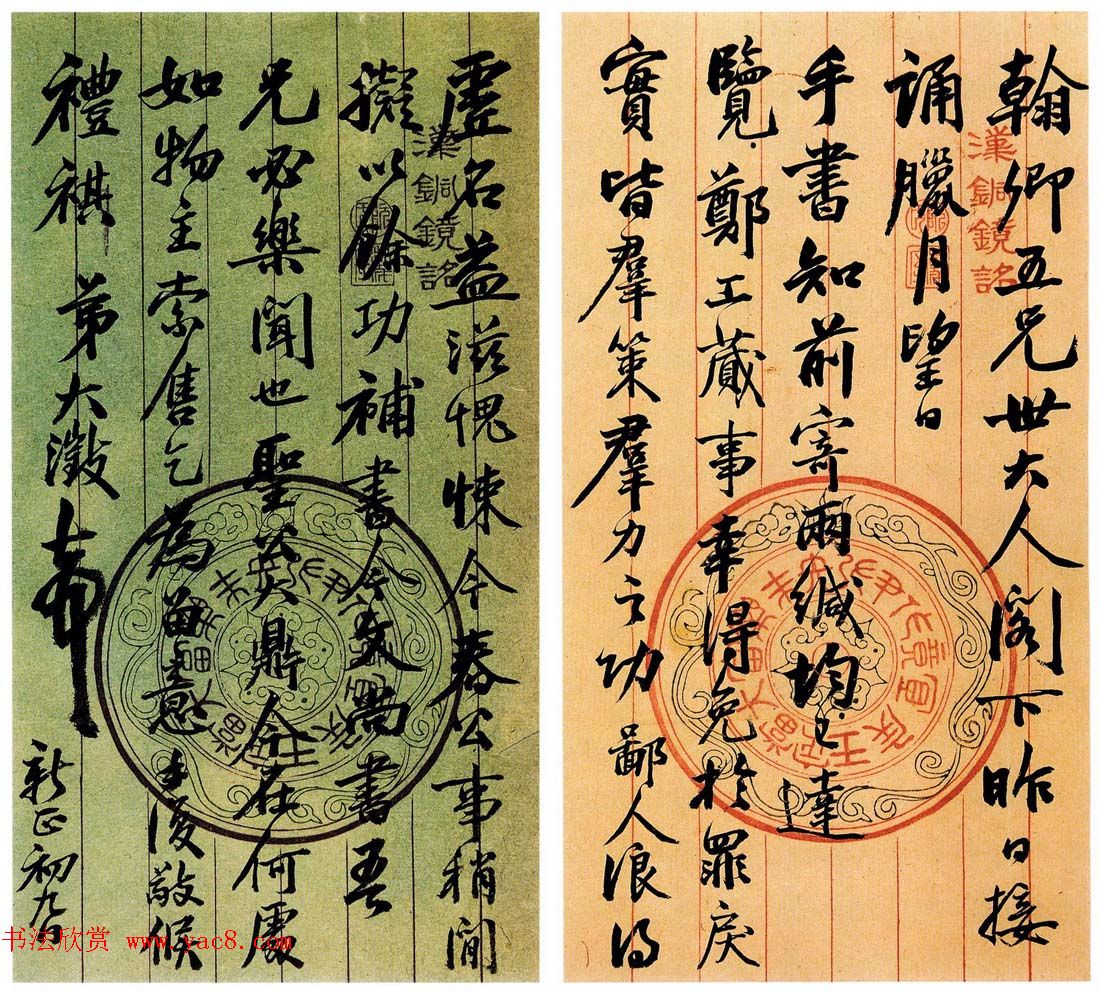 翰卿五兄世大人閣下昨日接
誦臘月望日
手書知前寄兩緘均已達
覽鄭工蕆事幸得免於罪戾
實皆羣策羣力之功鄙人浪得
漢銅鏡銘
虛名益滋愧悚今春公事稍閒
擬以餘功補書今文尚書吾
兄必樂聞也聖公鼎今在何處
如物主索售乞為留意手復敬候
禮祺 弟大澂頓首
新正初九日
漢銅鏡銘
书法欣赏 www.yac8.com